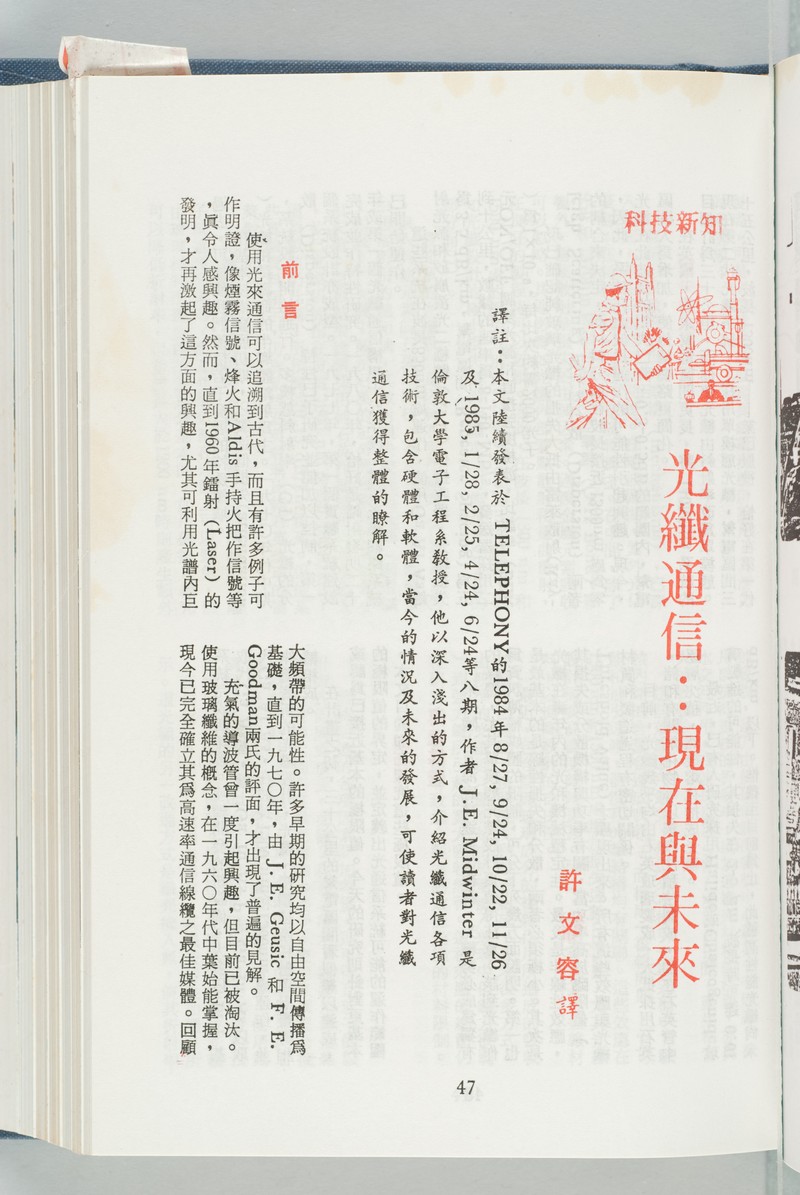 科技新知
光纖通信：現在與未來
許文容譯
譯註：本文陸續發表於 TELEPHONY的1984年8/27, 9/24, 10/22, 11/26
及 1985, 1/28, 2/25, 4/24, 6/24等八期，作者 J.E. Midwinter 是
倫敦大學電子工程系教授，他以深入淺出的方式，介紹光纖通信各項
技術，包含硬體和軟體，當今的情況及未來的發展，可使讀者對光纖
通信獲得整體的瞭解。
前言
使用光來通信可以追溯到古代，而且有許多例子可
作明證，像煙霧信號、烽火和Aldis手持火把作信號等
，眞令人感興趣。然而，直到1960年鐳射（Laser）的
發明，才再激起了這方面的興趣，尤其可利用光譜內巨
大頻帶的可能性。許多早期的研究均以自由空間傳播爲
基礎，直到一九七〇年，由 J. E. Geusic 和 F. E.
Goodman兩氏的評面，才出現了普遍的見解。
充氣的導波管曾一度引起興趣，但目前已被淘汰。
使用玻璃纖維的概念，在一九六〇年代中葉始能掌握，
現今已完全確立其爲高速率通信線纜之最佳媒體。回顧
47